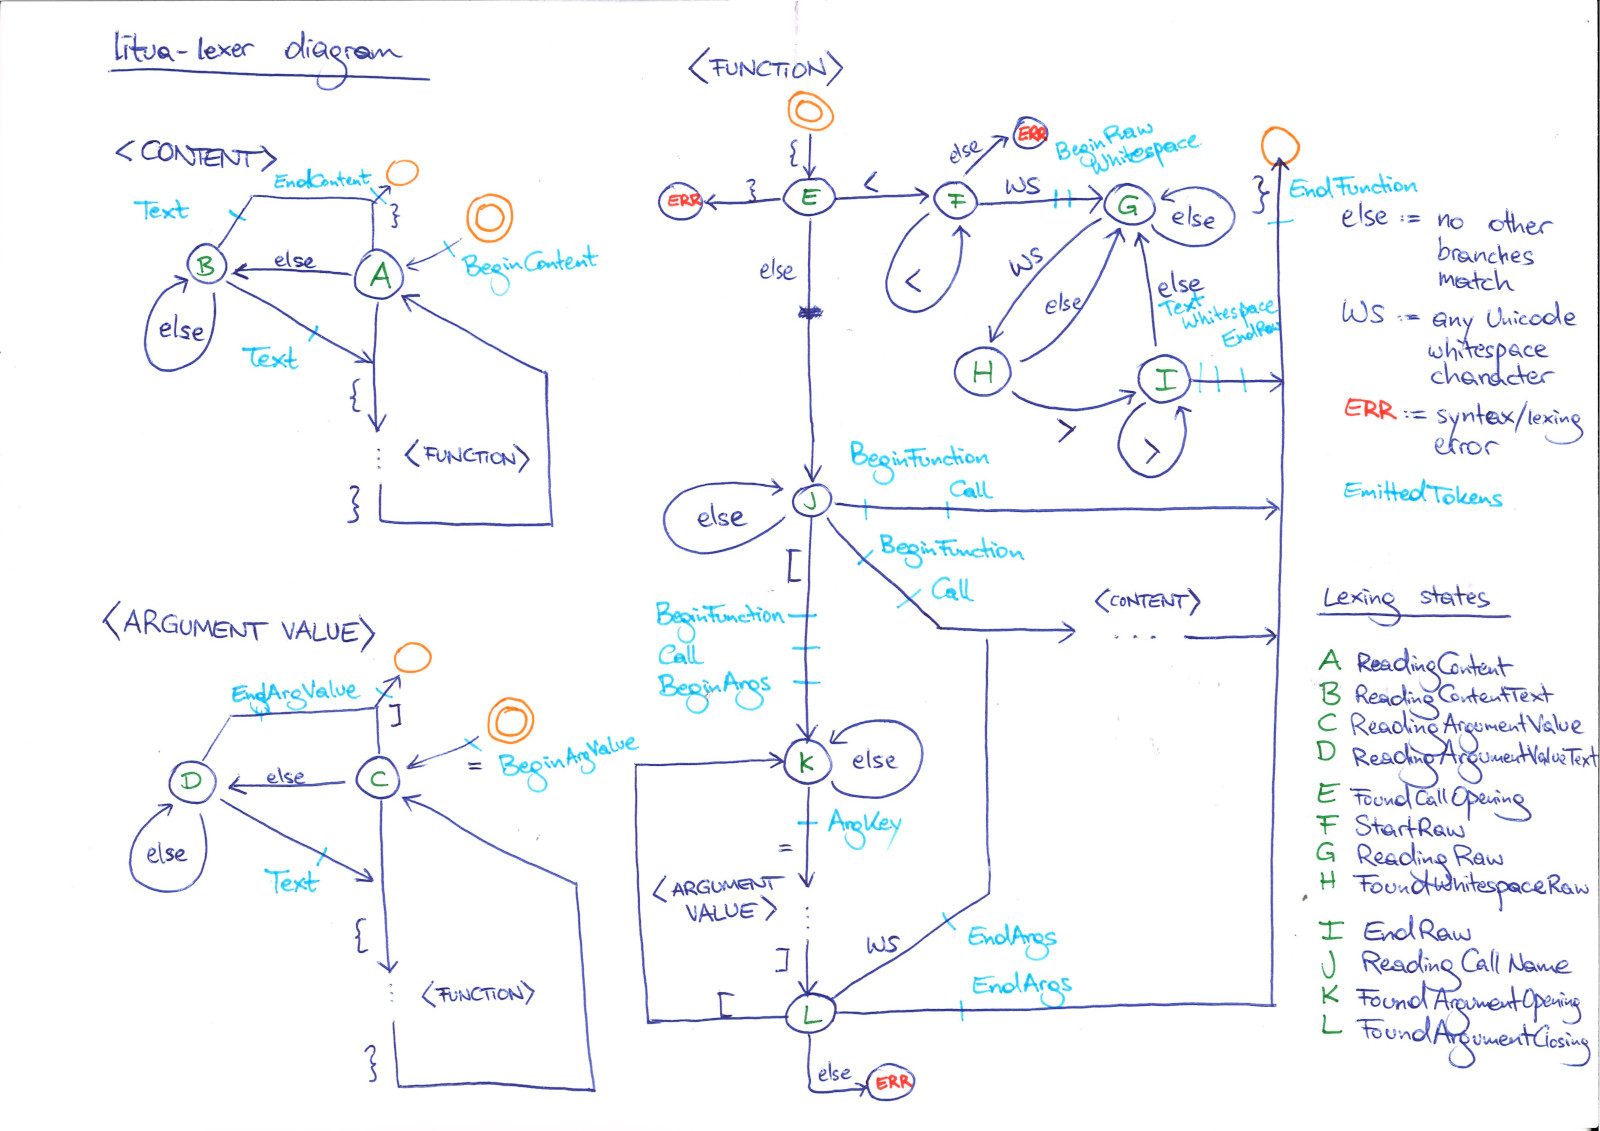 litua-lexer diagram
<CONTENT>
EndContent
Text
}
BeginContent
B
else
A
else
Text
{
<FUNCTION>
}
<ARGUMENT VALUE>
EndArgValue
]
= BeginArgValue
D
else
C
else
Text
{
<FUNCTION>
}
<FUNCTION>
{
ERR
}
E
<
F
else
ERR
BeginRaw
Whitespace
WS
G
else
<
WS
else
else
Text
Whitespace
EndRaw
H
I
>
>
}
EndFunction
else
J
else
BeginFunction
Call
BeginFunction
Call
[
BeginFunction
Call
BeginArgs
<CONTENT>
...
K
else
ArgKey
=
<ARGUMENT
VALUE>
]
WS
EndArgs
EndArgs
[
L
else
ERR
else := no other
branches
match
WS := any Unicode
whitespace
character
ERR := syntax/lexing
error
EmittedTokens
Lexing states
A ReadingContent
B ReadingContentText
C ReadingArgumentValue
D ReadingArgumentValueText
E FoundCallOpening
F StartRaw
G ReadingRaw
H FoundWhitespaceRaw
I EndRaw
J ReadingCallName
K FoundArgumentOpening
L FoundArgumentClosing